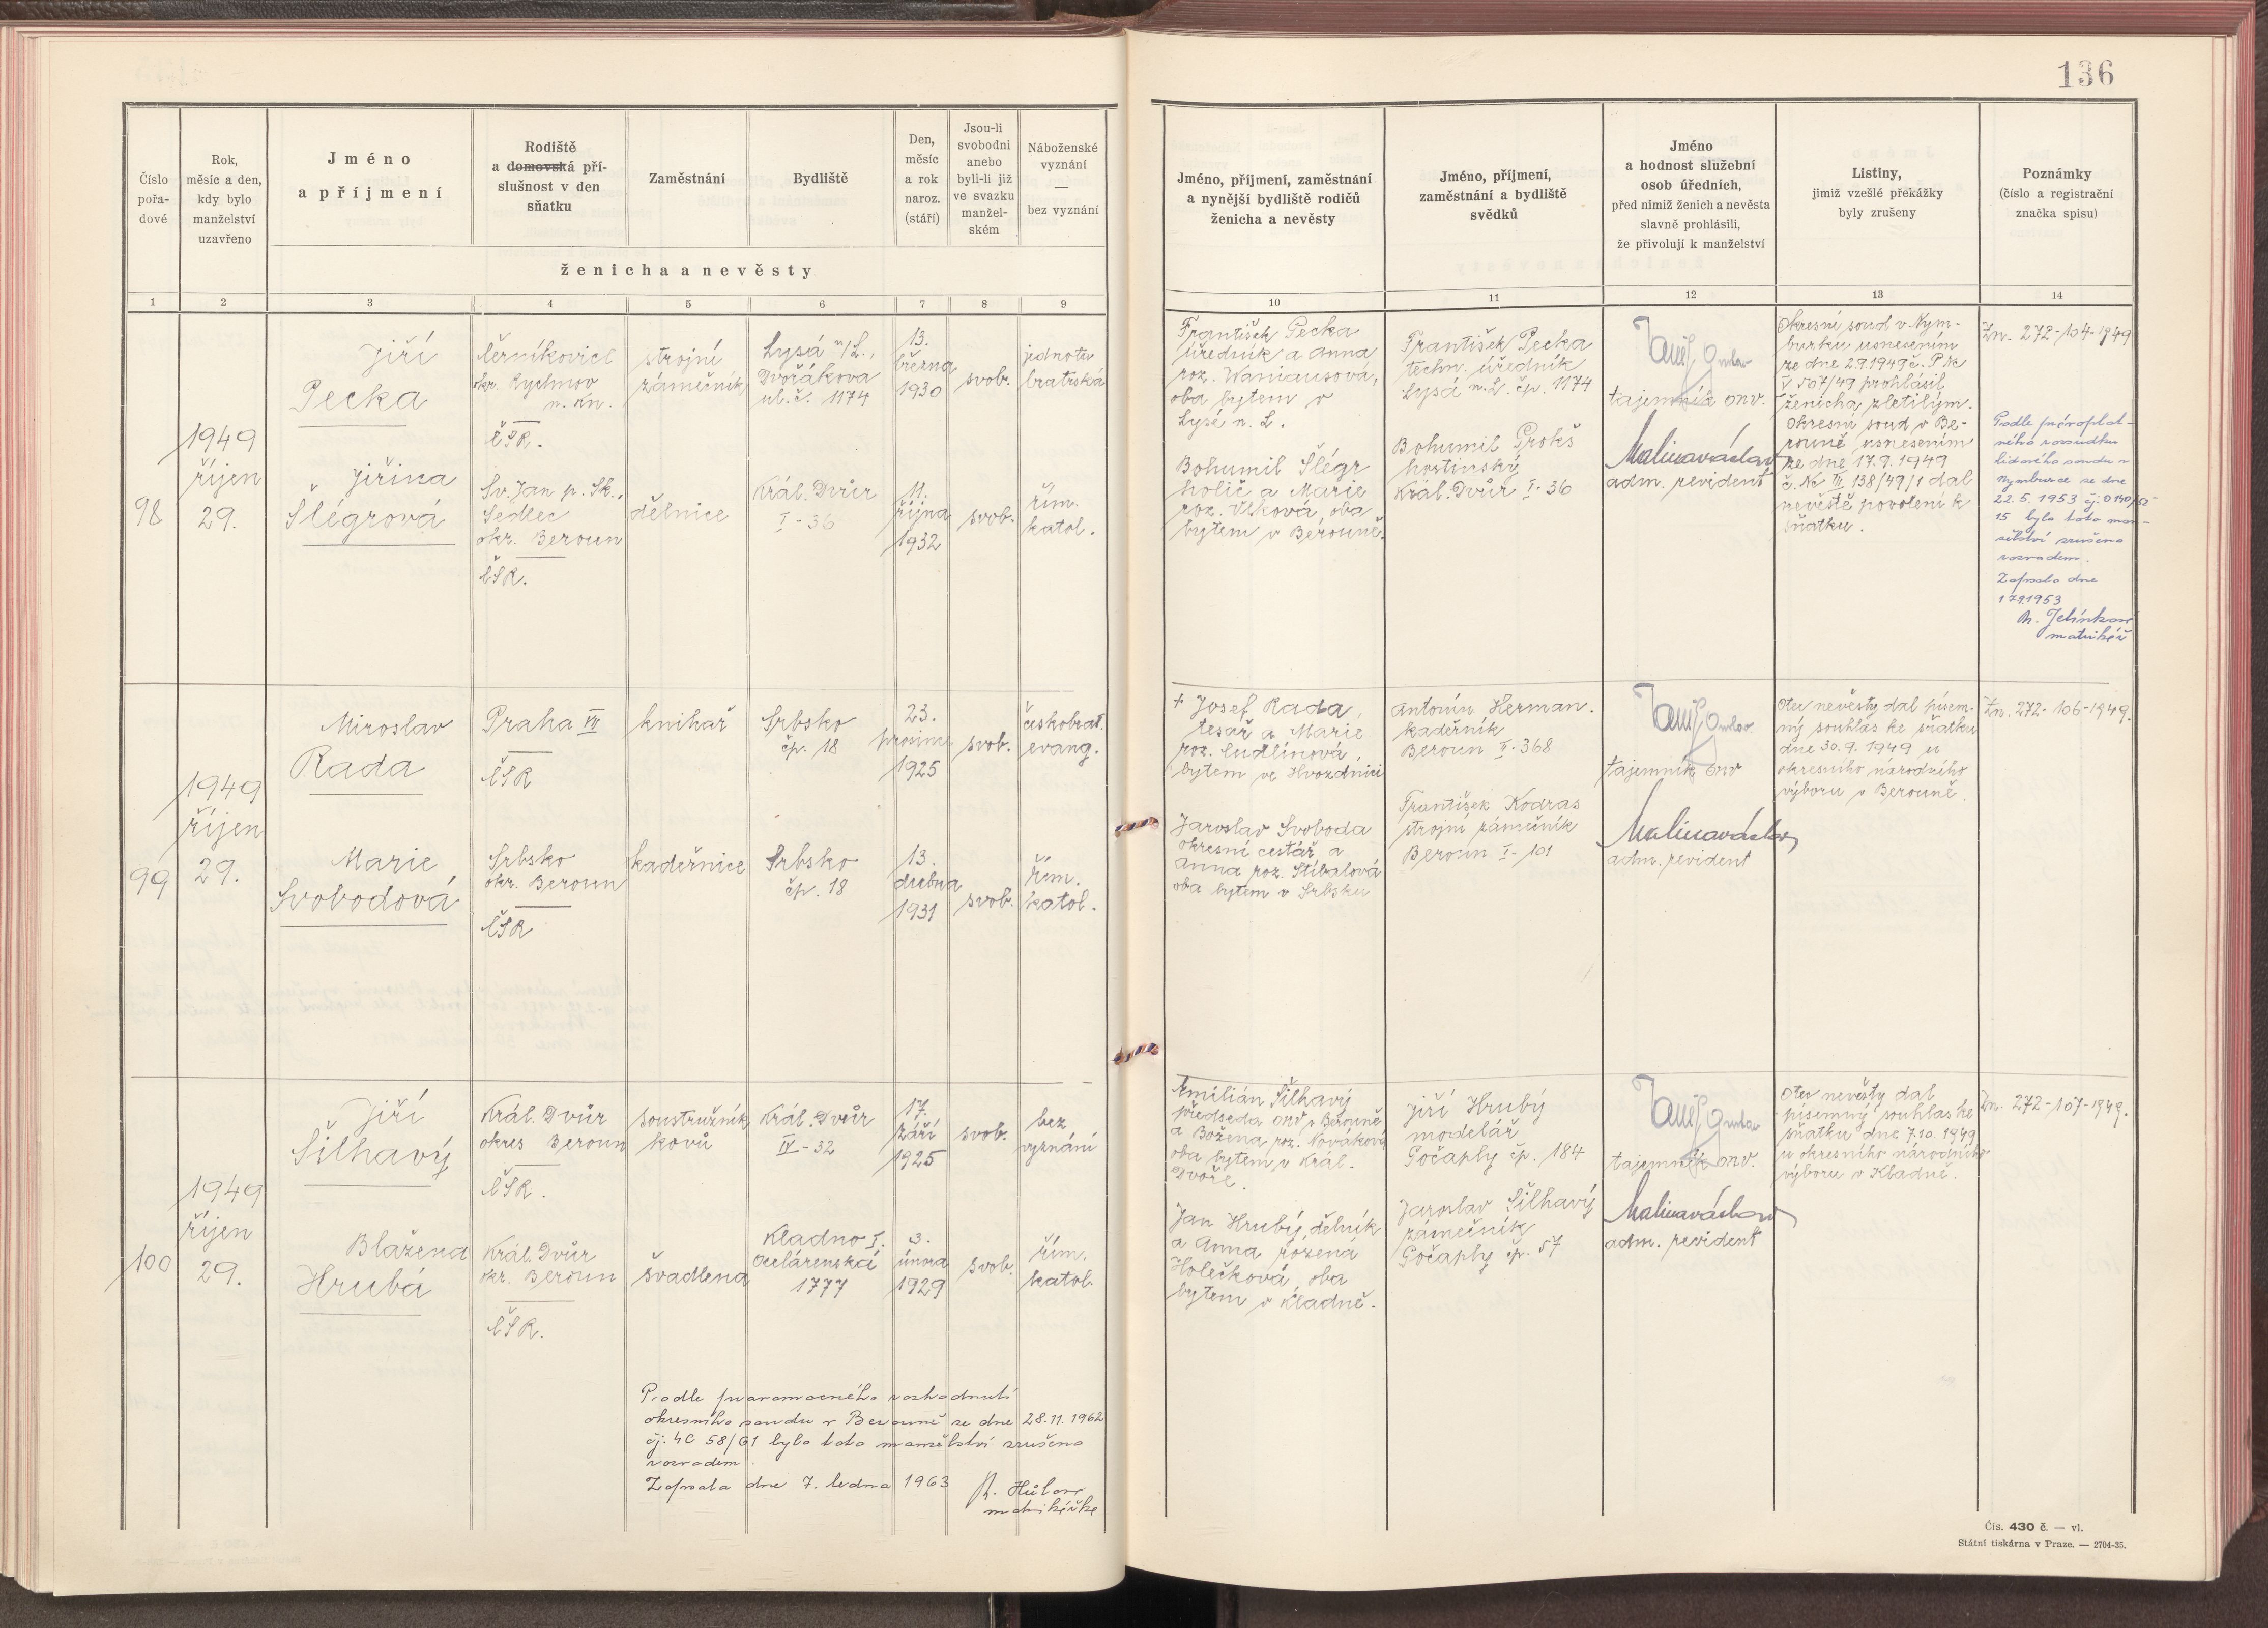 136
Číslo
pořa-
dové
Rok,
měsíc a den,
kdy bylo
manželství
uzavřeno
Jméno
a příjmení
Rodiště
a domovská pří-
slušnost v den
sňatku
Zaměstnání
Bydliště
Den,
měsíc
a rok
naroz.
(stáří)
Jsou-li
svobodni
anebo
byli-li již
ve svazku
manžel-
ském
Náboženské
vyznání
—
bez vyznání
ženicha a nevěsty
Jméno, příjmení, zaměstnání
a nynější bydliště rodičů
ženicha a nevěsty
Jméno, příjmení,
zaměstnání a bydliště
svědků
Jméno
a hodnost služební
osob úředních,
před nimiž ženich a nevěsta
slavně prohlásili,
že přivolují k manželství
Listiny,
jimiž vzešlé překážky
byly zrušeny
Poznámky
(číslo a registrační
značka spisu)
1 2 3 4 5 6 7 8 9 10 11 12 13 14
98
1949
říjen
29.
Jiří
Pecka
Černíkovice
okr. Rychnov
n. Kn.
ČSR.
strojní
zámečník
Lysá n/L.,
Dvořákova
ul. č. 1174
13.
března
1930
svob.
jednota
bratrská
Jiřina
Šlégrová
Sv. Jan p. Sk.,
Sedlec
okr. Beroun
ČSR.
dělnice
Král. Dvůr
I-36
11.
října
1932
svob.
řím.
katol.
František Pecka
úředník a Anna
roz. Waniausová,
oba bytem v
Lysé n. L.
Bohumil Šlégr
holič a Marie
roz. Vlková, oba
bytem v Berouně.
František Pecka
techn. úředník
Lysá n. L. čp. 1174
Bohumil Prokš
hostinský
Král. Dvůr I-36
tajemník ONV.
Malina Václav
adm. revident
Okresní soud v Nym-
burku usnesením
ze dne 2.9.1949 č. P Nc
V 507/49 prohlásil
ženicha zletilým.
Okresní soud v Be-
rouně usnesením
ze dne 17.9.1949
č. Nc III 138/49/1 dal
nevěstě povolení k
sňatku.
Zn. 272-104-1949
Podle pravoplat-
ného rozsudku
lidového soudu v
Nymburce ze dne
22.5.1953
15 bylo toto man-
želství zrušeno
rozvodem.
Zapsalo dne
17.9.1953
Jelínková
matrikář
99
1949
říjen
29.
Miroslav
Rada
Praha VII
ČSR
knihař
Srbsko
čp. 18
23.
prosince
1925
svob.
českobrat.
evang.
Marie
Svobodová
Srbsko
okr. Beroun
ČSR
kadeřnice
Srbsko
čp. 18
13.
dubna
1931
svob.
řím.
katol.
+ Josef Rada,
tesař a Marie
roz. Ludlínová,
bytem ve Hvozdnici
Jaroslav Svoboda
okresní cestář a
Anna roz. Stibalová
oba bytem v Srbsku
Antonín Herman.
kadeřník
Beroun II-368
František Kodras
strojní zámečník
Beroun I-101
tajemník ONV
Malina Václav
adm. revident
Otec nevěsty dal písem-
ný souhlas ke sňatku
dne 30.9.1949 u
okresního národního
výboru v Berouně.
Zn. 272-106-1949.
100
1949
říjen
29.
Jiří
Šilhavý
Král. Dvůr
okres Beroun
ČSR.
soustružník
kovů
Král. Dvůr
IV-32
17.
září
1925
svob.
bez
vyznání
Blažena
Hrubá
Král. Dvůr
okr. Beroun
ČSR.
švadlena
Kladno I.
Ocelárenská
1777
3.
února
1929
svob.
řím.
katol.
Emilián Šilhavý
předseda ONV v Berouně
a Božena, roz. Nováková
oba bytem v Král.
Dvoře.
Jan Hrubý, dělník
a Anna rozená
Holečková, oba
bytem v Kladně.
Jiří Hrubý
modelář
Počaply čp. 184
Jaroslav Šilhavý
zámečník
Počaply čp. 57
tajemník ONV.
Malina Václav
adm. revident
Otec nevěsty dal
písemný souhlas ke
sňatku dne 7.10.1949
u okresního národního
výboru v Kladně.
Zn. 272-107-1949.
Podle pravomocného rozhodnutí
okresního soudu v Berouně ze dne 28.11.1962
čj. 4C 58/61 bylo toto manželství zrušeno
rozvodem.
Zapsala dne 7. ledna 1963
matrikářka
Čís. 430 č. — vl.
Státní tiskárna v Praze. — 2704-35.